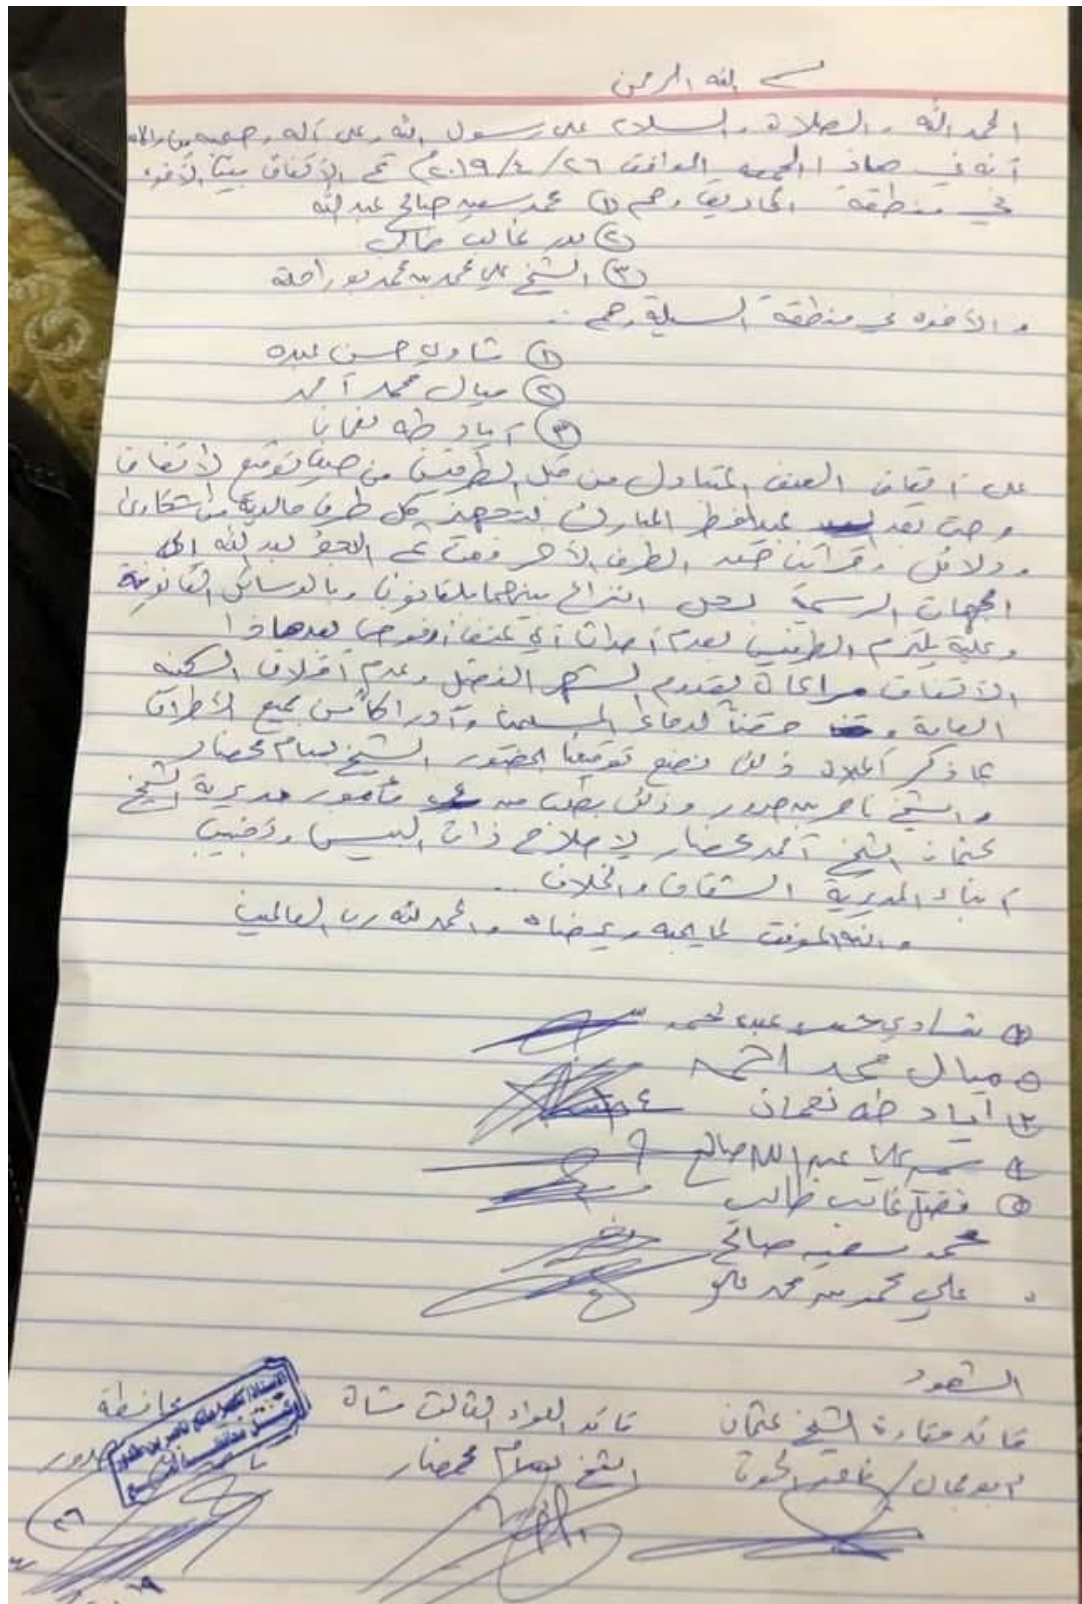 بسم الله الرحمن
الحمد الله والصلاة والسلام على رسول الله وعلى آله وصحبه ومن والاه
أنه في هاذا الجمعه الموافق ٢٠١٩/٤/٢٦م تم الاتفاق بين الأخوه
في منطقة وهم ① محمد سعيد صالح عبدالله
② بدر غالب طالب
③ الشيخ علي محمد بن محمد
والأخوه في منطقة السيلة وهم :
① شاوي حسن عبده
② ميال محمد أحمد
③ آياد طه نعمان
على ايقاف العنف المتبادل من قبل الطرفين من حين توقيع الاتفاق
وحتى بعد عيد الفطر المبارك لتجهيز كل طرف مالديه من شكاوى
ودلائل وقرائن ضد الطرف الآخر ومن ثم اللجوء بعد الله الى
الجهات الرسمية لحل النزاع بينهما بلقانون وبالوسائل القانونية
وعليه يلتزم الطرفين بعدم أحداث أي عنف أوفوضى بعد هاذا
الاتفاق مراعاة لقدوم الشهر الفضيل وعدم أقلاق السكينه
العامة حقناً لدماء المسلمين وأدراكاً من جميع الأطراف
بما ذكر أعلاه وذلك نضع توقيعنا بحضور الشيخ بسام محضار
والشيخ ناصر بن حدور وذلك بطلب من مأمور مديرية الشيخ
عثمان الشيخ أحمد محضار لإصلاح ذات البين وتجنيب
أبناء المديرية الشقاق والخلاف ..
والله الموفق لما يحبه ويرضاه والحمد لله رب العالمين
① شاوي حسن عبده
② ميال محمد احمد
③ آياد طه نعمان
④ عبدالله صالح
⑤ فضل غالب طالب
محمد سعيد صالح
علي محمد بن محمد
الشهود
قائد الشيخ عثمان
ابو جمال /
قائد اللواء الثالث مشاة
الشيخ بسام محضار
محافظة